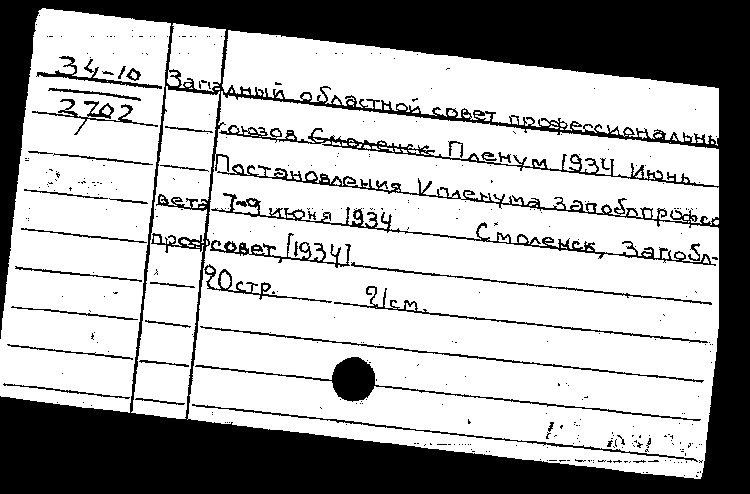 34-10
2702
Западный областной совет профессиональны
союзов. Смоленск. Пленум 1934 Июнь.
Постановления V пленума Запоблпрофсо
вета 7-9 июня 1934. Смоленск, Запобл-
профсовет, [1934].
20стр. 21см.